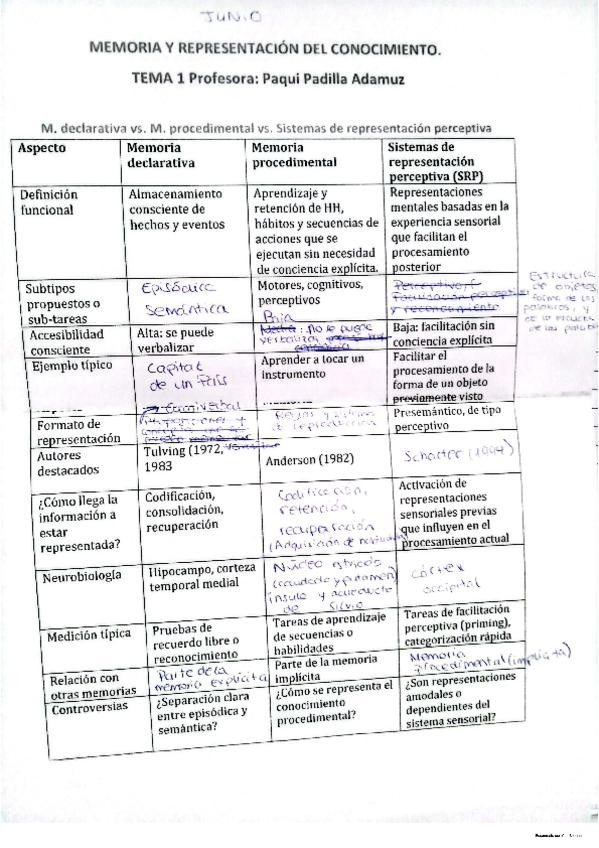 JUNIO
MEMORIA Y REPRESENTACIÓN DEL CONOCIMIENTO.
TEMA 1 Profesora: Paqui Padilla Adamuz
M. declarativa vs. M. procedimental vs. Sistemas de representación perceptiva
Aspecto
Memoria
declarativa
Memoria
procedimental
Sistemas de
representación
perceptiva (SRP)
Definición
funcional
Almacenamiento
consciente de
hechos y eventos
Aprendizaje y
retención de HH,
hábitos y secuencias de
acciones que se
ejecutan sin necesidad
de conciencia explícita.
Representaciones
mentales basadas en la
experiencia sensorial
que facilitan el
procesamiento
posterior
Subtipos
propuestos o
sub-tareas
Episódica
Semántica
Motores, cognitivos,
perceptivos
Perceptivo,
facilitación perceptiva
y reconocimiento
Estructura
de objetos,
forma de las
palabras, y
Accesibilidad
consciente
Alta: se puede
verbalizar
Baja
: no se puede
verbalizar
Baja: facilitación sin
conciencia explícita
Ejemplo típico
Capital
de un País
Aprender a tocar un
instrumento
Facilitar el
procesamiento de la
forma de un objeto
previamente visto
Formato de
representación
Reglas y
Presemántico, de tipo
perceptivo
Autores
destacados
Tulving (1972,
1983
Anderson (1982)
Schacter (1994)
¿Cómo llega la
información a
estar
representada?
Codificación,
consolidación,
recuperación
Codificación,
retención,
recuperación
(Adquisición de
Activación de
representaciones
sensoriales previas
que influyen en el
procesamiento actual
Neurobiología
Hipocampo, corteza
temporal medial
Núcleo estriado
(caudado y putamen)
ínsula y acueducto
de Silvio
córtex
occipital
Medición típica
Pruebas de
recuerdo libre o
reconocimiento
Tareas de aprendizaje
de secuencias o
habilidades
Tareas de facilitación
perceptiva (priming),
categorización rápida
Relación con
otras memorias
Parte de la
memoria explícita
Parte de la memoria
implícita
Memoria
procedimental (implícita)
Controversias
¿Separación clara
entre episódica y
semántica?
¿Cómo se representa el
conocimiento
procedimental?
¿Son representaciones
amodales o
dependientes del
sistema sensorial?